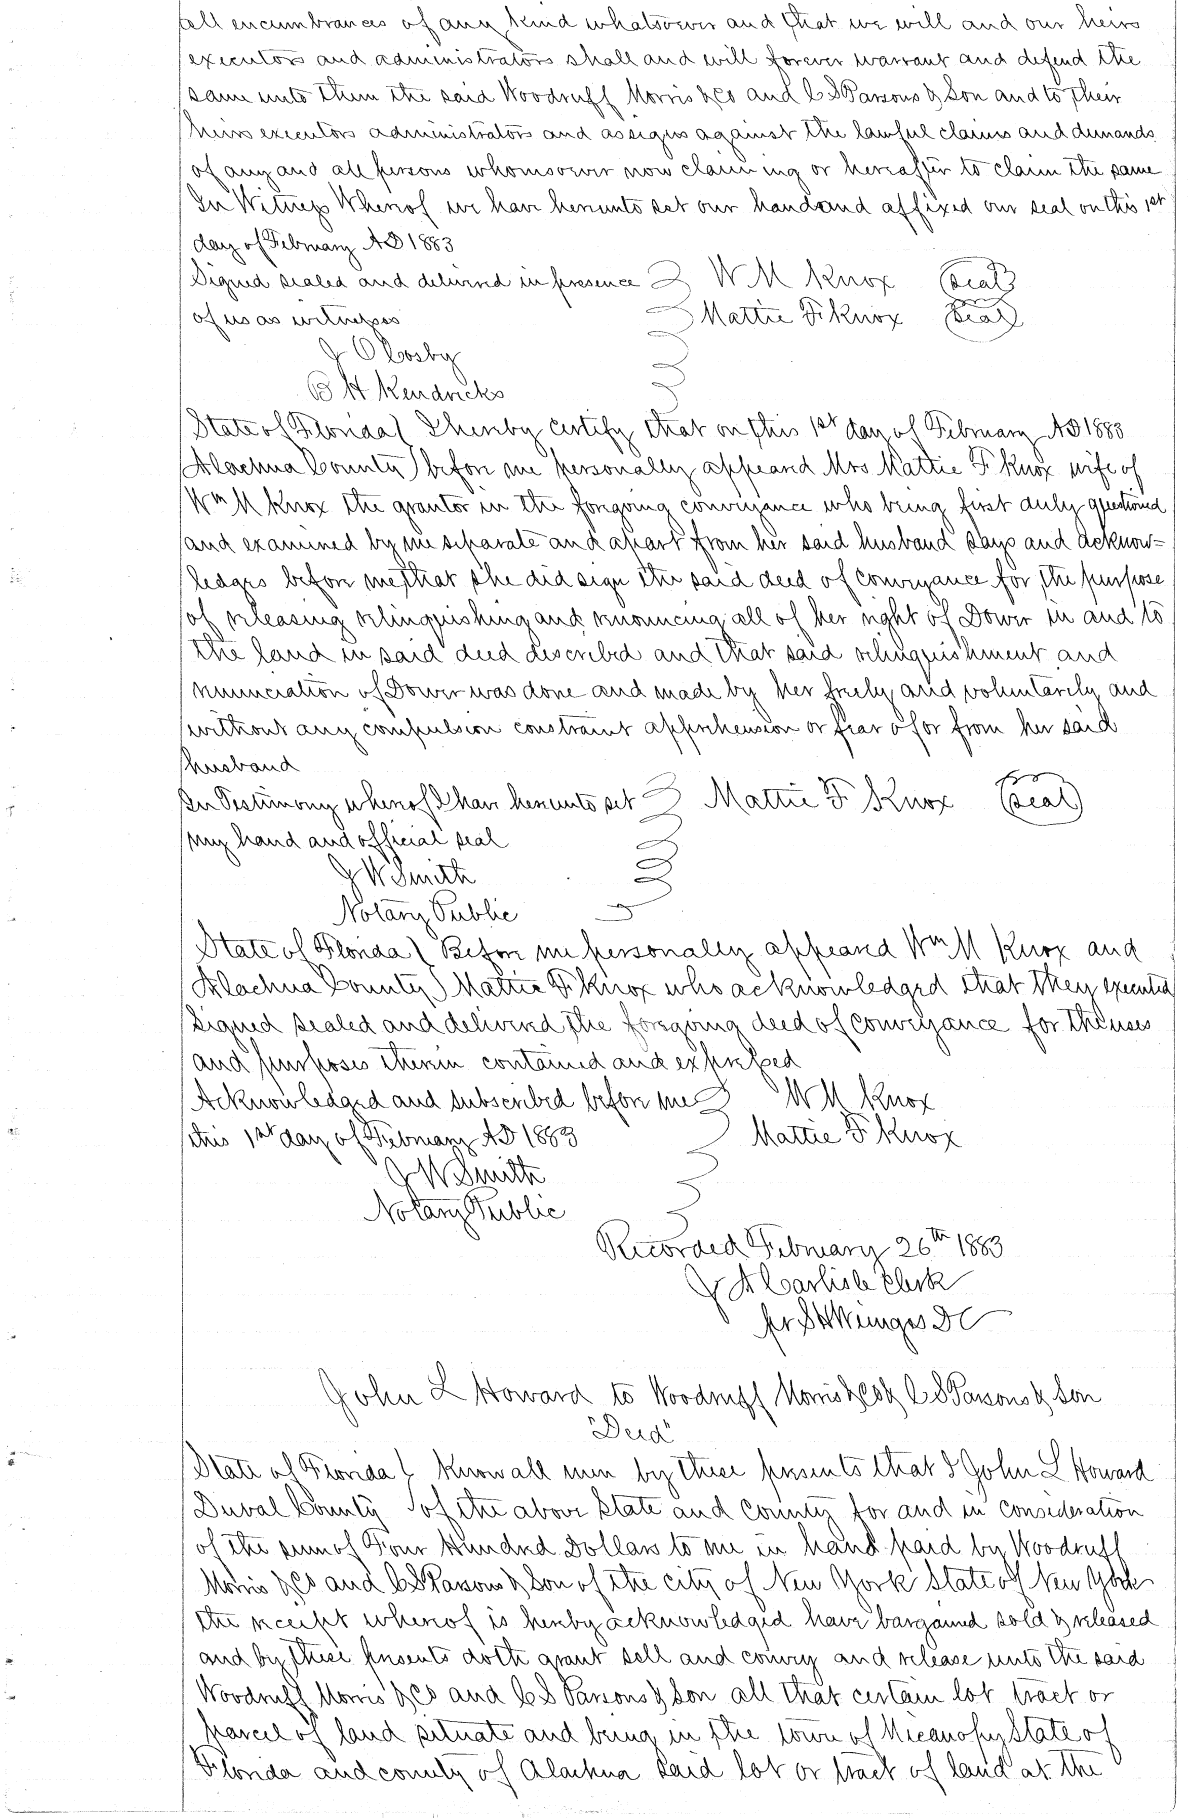 all encumbrances of any kind whatsoever and that we will and our heirs
executors and administrators shall and will forever warrant and defend the
same unto them the said Woodruff Morris & Co and C S Parsons & Son and to their
heirs executors administrators and assigns against the lawful claims and demands
of any and all persons whomsoever now claiming or hereafter to claim the same
In Witness Whereof we have hereunto set our hand and affixed our seal on this 1st
day of February AD 1883
Signed sealed and delivered in presence W M Knox (Seal)
of us as witnesses Mattie F Knox (Seal)
J O Cosby
B H Kendricks
State of Florida ( I hereby certify that on this 1st day of February AD 1883
Alachua County ) before me personally appeared Mrs Mattie F Knox wife of
Wm M Knox the grantor in the foregoing conveyance who being first duly questioned
and examined by me separate and apart from her said husband says and acknow=
ledges before me that she did sign the said deed of conveyance for the purpose
of releasing relinquishing and renouncing all of her right of Dower in and to
the land in said deed described and that said relinquishment and
renunciation of Dower was done and made by her freely and voluntarily and
without any compulsion constraint apprehension or fear of or from her said
husband
In Testimony whereof I have hereunto set Mattie F Knox (Seal)
my hand and official seal
J W Smith
Notary Public
State of Florida ( Before me personally appeared Wm M Knox and
Alachua County ) Mattie F Knox who acknowledged that they executed
signed sealed and delivered the foregoing deed of conveyance for the uses
and purposes therein contained and expressed
Acknowledged and subscribed before me W M Knox
this 1st day of February AD 1883 Mattie F Knox
J W Smith
Notary Public
Recorded February 26th 1883
J A Carlisle Clerk
pr S H Wienges DC
John L Howard to Woodruff Morris & Co & C S Parsons & Son
"Deed"
State of Florida ( Know all men by these presents that I John L Howard
Duval County ) of the above State and county for and in consideration
of the sum of Four Hundred Dollars to me in hand paid by Woodruff
Morris & Co and C S Parsons & Son of the city of New York State of New York
the receipt whereof is hereby acknowledged have bargained sold & released
and by these presents doth grant sell and convey and release unto the said
Woodruff Morris & Co and C S Parsons & Son all that certain lot tract or
parcel of land situate and being in the town of Micanopy State of
Florida and county of Alachua said lot or tract of land at the